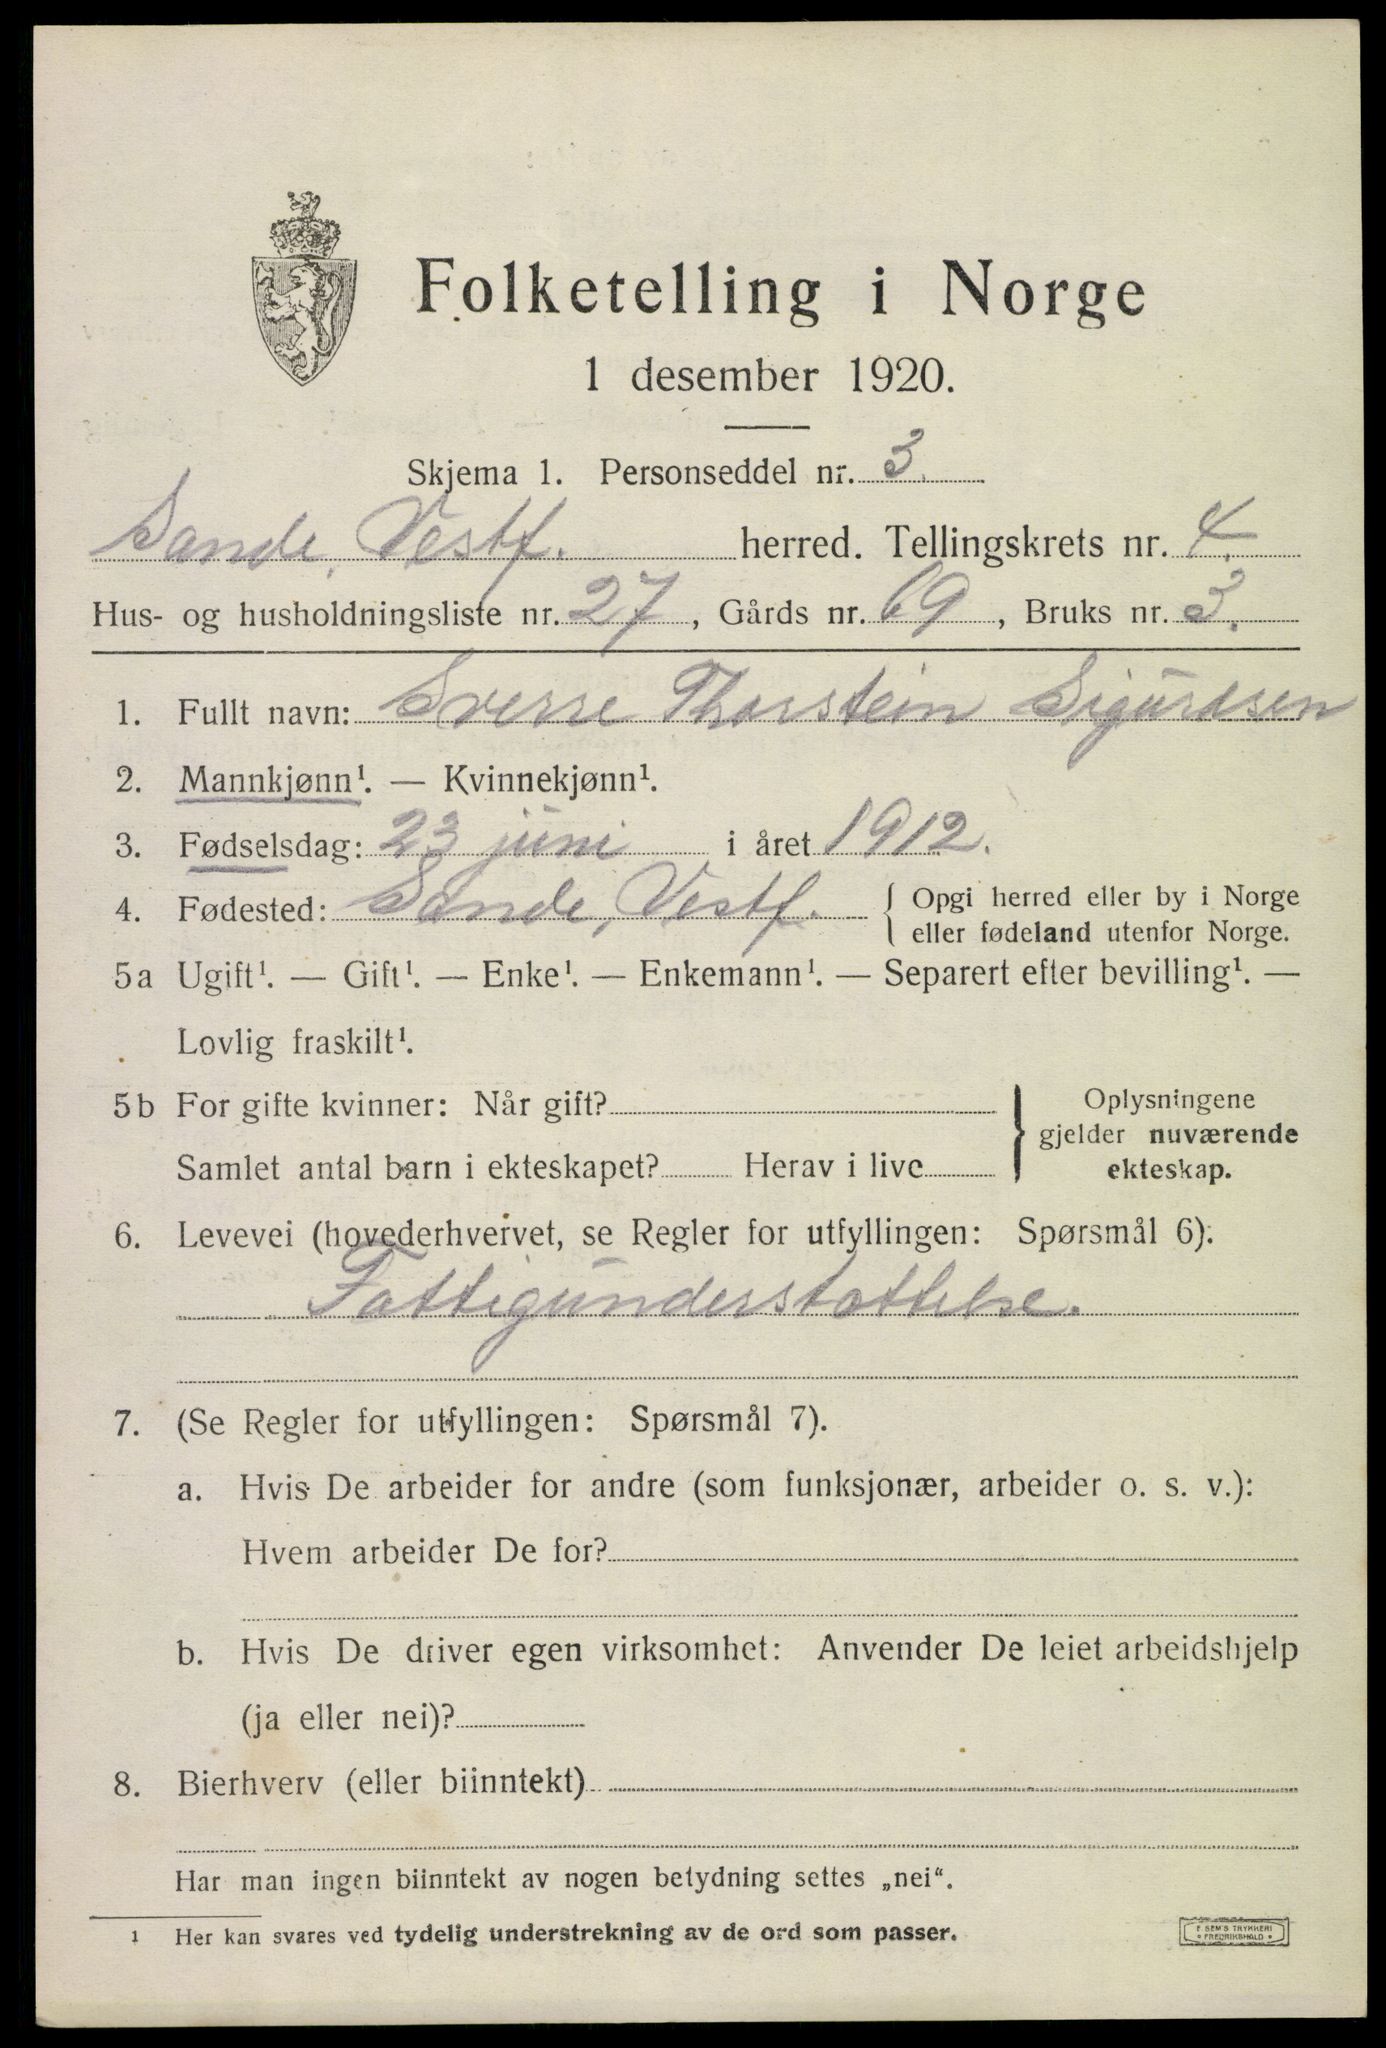 Folketelling i Norge
1 desember 1920.
Skjema 1. Personseddel nr. 3.
Sande, Vestf. herred. Tellingskrets nr. 4.
Hus- og husholdningsliste nr. 27, Gårds nr. 69, Bruks nr. 3.
1. Fullt navn: Sverre Thorstein Sigurdsen
2. Mannkjønn¹. — Kvinnekjønn¹.
3. Fødselsdag: 23 juni i året 1912.
4. Fødested: Sande, Vestf. { Opgi herred eller by i Norge
eller fødeland utenfor Norge.
5a Ugift¹. — Gift¹. — Enke¹. — Enkemann¹. — Separert efter bevilling¹. —
Lovlig fraskilt¹.
5b For gifte kvinner: Når gift?
Samlet antal barn i ekteskapet? Herav i live
} Oplysningene
gjelder nuværende
ekteskap.
6. Levevei (hovederhvervet, se Regler for utfyllingen: Spørsmål 6):
Fattigunderstøttelse.
7. (Se Regler for utfyllingen: Spørsmål 7).
a. Hvis De arbeider for andre (som funksjonær, arbeider o. s. v.):
Hvem arbeider De for?
b. Hvis De driver egen virksomhet: Anvender De leiet arbeidshjelp
(ja eller nei)?
8. Bierhverv (eller biinntekt)
Har man ingen biinntekt av nogen betydning settes „nei“.
¹ Her kan svares ved tydelig understrekning av de ord som passer.
F. SEM'S TRYKKERI
• FREDRIKSHALD •